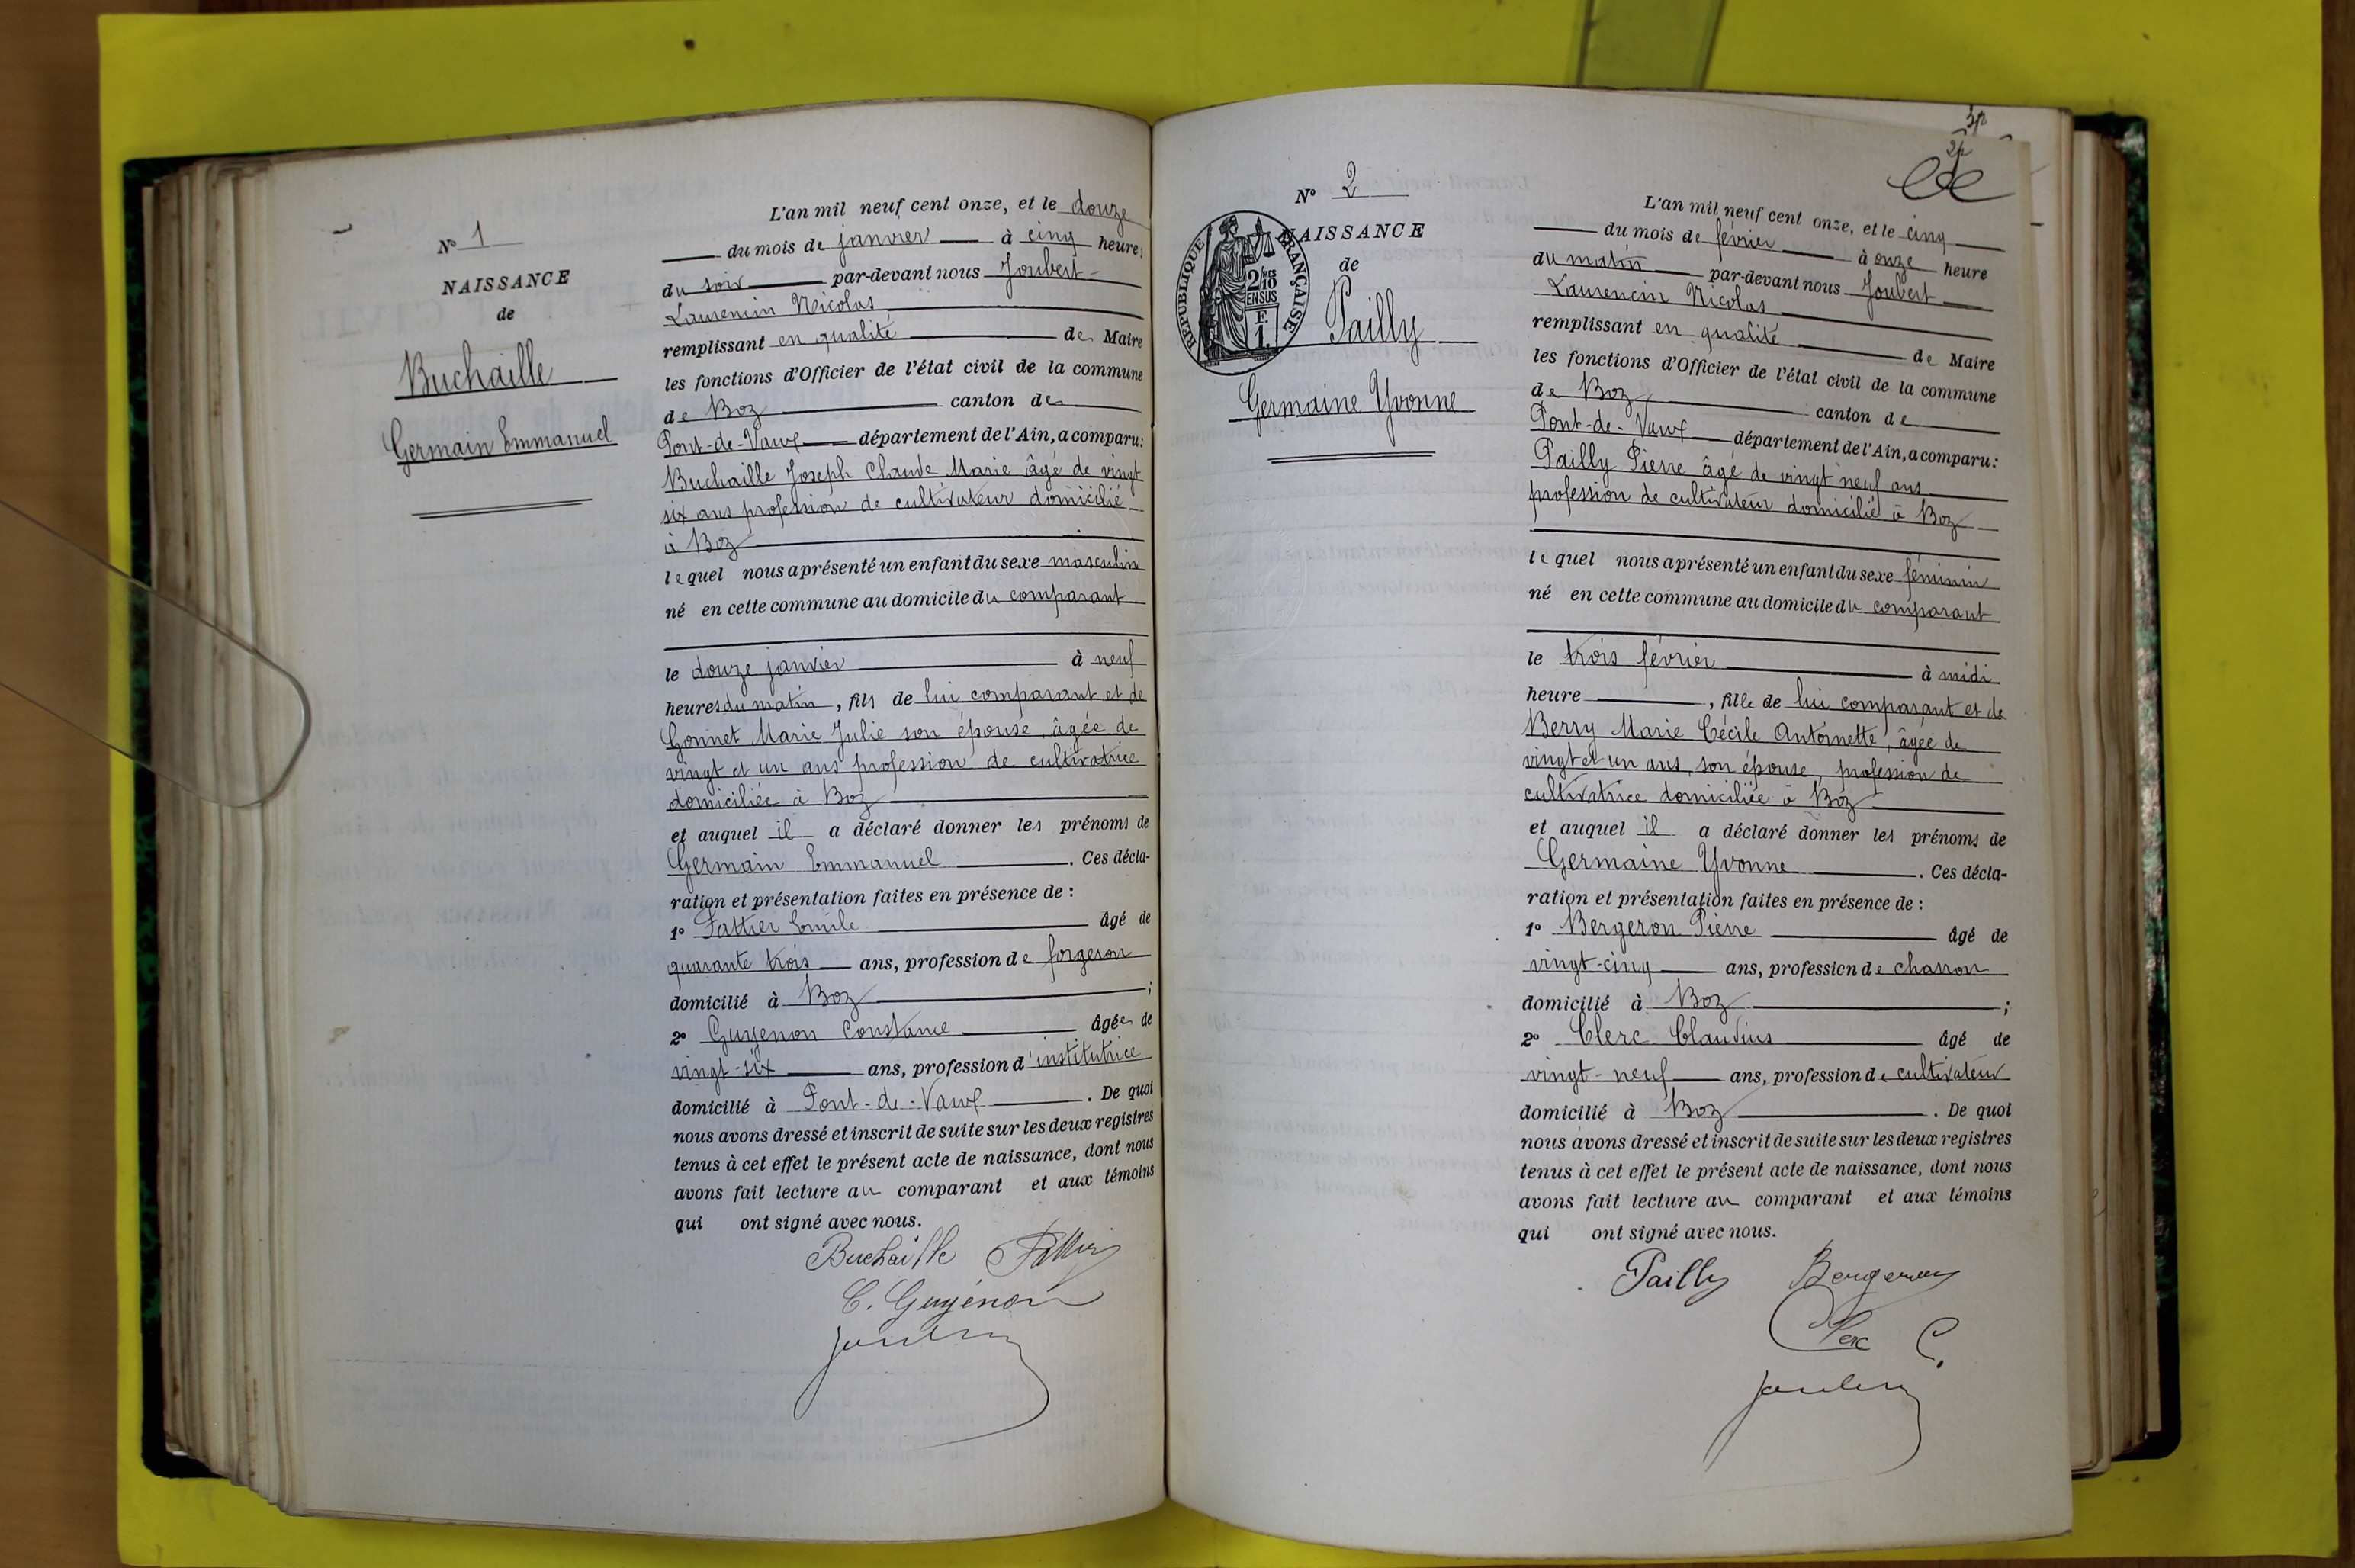 N° 1
NAISSANCE
de
Buchaille
Germain Emmanuel
L'an mil neuf cent onze, et le douze
du mois de janvier à cinq heures
du soir par-devant nous Joubert
Laurencin Nicolas
remplissant en qualité de Maire
les fonctions d'Officier de l'état civil de la commune
de Boz canton de
Pont-de-Vaux département de l'Ain, a comparu:
Buchaille Joseph Claude Marie âgé de vingt
six ans profession de cultivateur domicilié
à Boz
lequel nous a présenté un enfant du sexe masculin
né en cette commune au domicile du comparant
le douze janvier à neuf
heures du matin, fils de lui comparant et de
Gonnet Marie Julie son épouse, âgée de
vingt et un ans profession de cultivatrice
domiciliée à Boz
et auquel il a déclaré donner les prénoms de
Germain Emmanuel. Ces décla-
ration et présentation faites en présence de :
1° Fattier Emile âgé de
quarante trois ans, profession de forgeron
domicilié à Boz ;
2° Guyenon Constance âgée de
vingt-six ans, profession d'institutrice
domicilié à Pont-de-Vaux. De quoi
nous avons dressé et inscrit de suite sur les deux registres
tenus à cet effet le présent acte de naissance, dont nous
avons fait lecture au comparant et aux témoins
qui ont signé avec nous.
Buchaille Fattier
C. Guyénon
Joubert
3p
2p
N° 2
NAISSANCE
de
RÉPUBLIQUE FRANÇAISE
2/10
EN SUS
F.
1.
Pailly
Germaine Yvonne
L'an mil neuf cent onze, et le cinq
du mois de février à onze heure
du matin par-devant nous Joubert
Laurencin Nicolas
remplissant en qualité de Maire
les fonctions d'Officier de l'état civil de la commune
de Boz canton de
Pont-de-Vaux département de l'Ain, a comparu:
Pailly Pierre âgé de vingt neuf ans
profession de cultivateur domicilié à Boz
lequel nous a présenté un enfant du sexe féminin
né en cette commune au domicile du comparant
le trois février à midi
heure , fille de lui comparant et de
Berry Marie Cécile Antoinette, âgée de
vingt et un ans, son épouse, profession de
cultivatrice domiciliée à Boz
et auquel il a déclaré donner les prénoms de
Germaine Yvonne. Ces décla-
ration et présentation faites en présence de :
1° Bergeron Pierre âgé de
vingt-cinq ans, profession de charron
domicilié à Boz ;
2° Clerc Claudius âgé de
vingt-neuf ans, profession de cultivateur
domicilié à Boz. De quoi
nous avons dressé et inscrit de suite sur les deux registres
tenus à cet effet le présent acte de naissance, dont nous
avons fait lecture au comparant et aux témoins
qui ont signé avec nous.
Pailly Bergeron
Clerc C.
Joubert